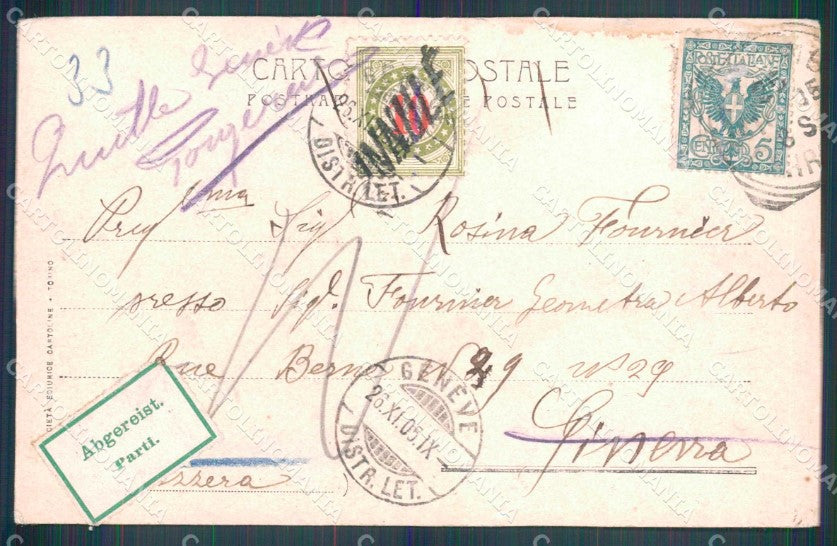 33
Quitté Genève
CARTOLINA POSTALE
POSTKARTE POSTALE
POSTE ITALIANE
CENT 5
26.XI
DISTR. LET.
Preg ma Sig Rosina Fournier
presso Sig. Fournier Geometra Alberto
Rue Berne N 29 N 29
Ginevra
GENÈVE
26.XI.05.IX
DISTR. LET.
Abgereist.
Parti.
izzera
SOCIETÀ EDITRICE CARTOLINE • TORINO
CARTOLINOMANIA